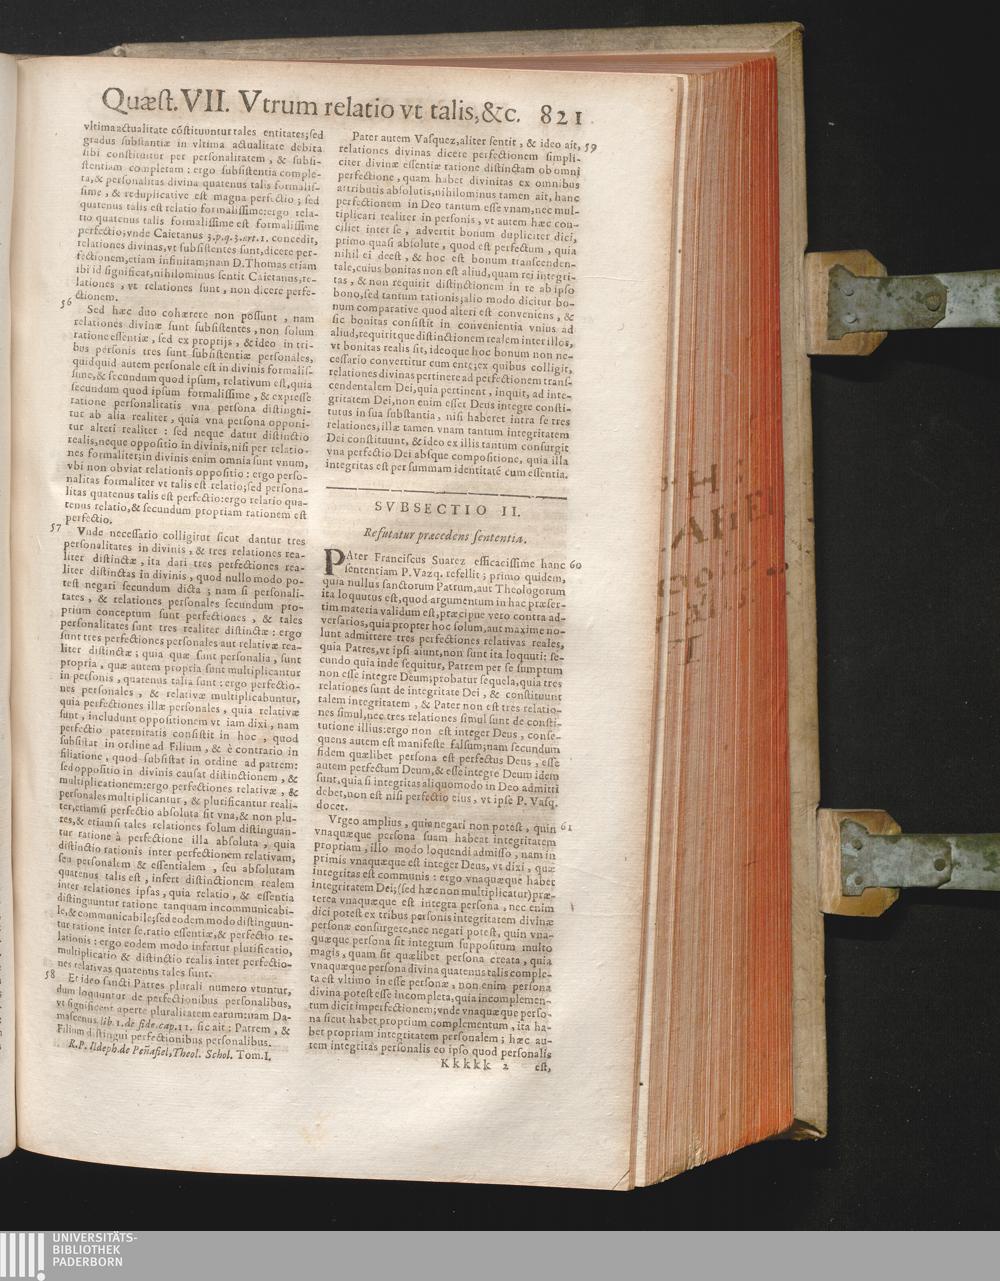 Quæst. VII. Vtrum relatio vt talis, &c. 821
vltima actualitate cõstituuntur tales entitates; sed
gradus substantiæ in vltima actualitate debita
sibi constituitur per personalitatem, & subsi-
stentiam completam: ergo subsistentia comple-
ta, & personalitas divina quatenus talis formalis-
sime, & reduplicative est magna perfectio; sed
quatenus talis est relatio formalissime: ergo rela-
tio quatenus talis formalissime est formalissime
perfectio; vnde Caietanus 3. p. q. 3. art. 1. concedit,
relationes divinas, vt subsistentes sunt, dicere per-
fectionem, etiam infinitam; nam D. Thomas etiam
ibi id significat, nihilominus sentit Caietanus, re-
lationes, vt relationes sunt, non dicere perfe-
ctionem.
56 Sed hæc duo cohærere non possunt, nam
relationes divinæ sunt subsistentes, non solum
ratione essentiæ, sed ex proprijs, & ideo in tri-
bus personis tres sunt subsistentiæ personales,
quidquid autem personale est in divinis formalis-
sime, & secundum quod ipsum, relativum est, quia
secundum quod ipsum formalissime, & expresse
ratione personalitatis vna persona distingui-
tur ab alia realiter, quia vna persona opponi-
tur alteri realiter: sed neque datur distinctio
realis, neque oppositio in divinis, nisi per relatio-
nes formaliter; in divinis enim omnia sunt vnum,
vbi non obviat relationis oppositio: ergo perso-
nalitas formaliter vt talis est relatio; sed persona-
litas quatenus talis est perfectio: ergo relatio qua-
tenus relatio, & secundum propriam rationem est
perfectio.
57 Vnde necessario colligitur sicut dantur tres
personalitates in divinis, & tres relationes rea-
liter distinctæ, ita dari tres perfectiones rea-
liter distinctas in divinis, quod nullo modo po-
test negari secundum dicta; nam si personali-
tates, & relationes personales secundum pro-
prium conceptum sunt perfectiones, & tales
personalitates sunt tres realiter distinctæ: ergo
sunt tres perfectiones personales aut relativæ rea-
liter distinctæ; quia quæ sunt personalia, sunt
propria, quæ autem propria sunt multiplicantur
in personis, quatenus talia sunt: ergo perfectio-
nes personales, & relativæ multiplicabuntur,
quia perfectiones illæ personales, quia relativæ
sunt, includunt oppositionem vt iam dixi, nam
perfectio paternitatis consistit in hoc, quod
subsistat in ordine ad Filium, & è contrario in
filiatione, quod subsistat in ordine ad patrem:
sed oppositio in divinis causat distinctionem, &
multiplicationem: ergo perfectiones relativæ, &
personales multiplicantur, & plurificantur reali-
ter, etiamsi perfectio absoluta sit vna, & non plu-
res, & etiamsi tales relationes solum distinguan-
tur ratione à perfectione illa absoluta, quia
distinctio rationis inter perfectionem relativam,
seu personalem & essentialem, seu absolutam
quatenus talis est, infert distinctionem realem
inter relationes ipsas, quia relatio, & essentia
distinguuntur ratione tanquam incommunicabi-
le, & communicabile; sed eodem modo distinguun-
tur ratione inter se, ratio essentiæ, & perfectio re-
lationis: ergo eodem modo infertur plurificatio,
multiplicatio & distinctio realis inter perfectio-
nes relativas quatenus tales sunt.
58 Et ideo sancti Patres plurali numero vtuntur,
dum loquuntur de perfectionibus personalibus,
vt significent aperte pluralitatem earum: nam Da-
mascenus lib. 1. de fide. cap. 11. sic ait: Patrem, &
Filium distingui perfectionibus personalibus.
R. P. Ildeph. de Peñafiel, Theol. Schol. Tom. I.
Pater autem Vasquez, aliter sentit, & ideo ait, 59
relationes divinas dicere perfectionem simpli-
citer divinæ essentiæ ratione distinctam ob omni
perfectione, quam habet divinitas ex omnibus
attributis absolutis, nihilominus tamen ait, hanc
perfectionem in Deo tantum esse vnam, nec mul-
tiplicari realiter in personis, vt autem hæc con-
ciliet inter se, advertit bonum dupliciter dici,
primo quasi absolute, quod est perfectum, quia
nihil ei deest, & hoc est bonum transcenden-
tale, cuius bonitas non est aliud, quam rei integri-
tas, & non requirit distinctionem in re ab ipso
bono, sed tantum rationis; alio modo dicitur bo-
num comparative quod alteri est conveniens, &
sic bonitas consistit in convenientia vnius ad
aliud, requiritque distinctionem realem inter illos,
vt bonitas realis sit, ideoque hoc bonum non ne-
cessario convertitur cum ente; ex quibus colligit,
relationes divinas pertinere ad perfectionem trans-
cendentalem Dei, quia pertinent, inquit, ad inte-
gritatem Dei, non enim esset Deus integre consti-
tutus in sua substantia, nisi haberet intra se tres
relationes, illæ tamen vnam tantum integritatem
Dei constituunt, & ideo ex illis tantum consurgit
vna perfectio Dei absque compositione, quia illa
integritas est per summam identitatẽ cum essentia.
SVBSECTIO II.
Refutatur præcedens sententia.
PAter Franciscus Suarez efficacissime hanc 60
sententiam P. Vazq. refellit; primo quidem,
quia nullus sanctorum Patrum, aut Theologorum
ita loquutus est, quod argumentum in hac præser-
tim materia validum est, præcipue vero contra ad-
versarios, quia propter hoc solum, aut maxime no-
lunt admittere tres perfectiones relativas reales,
quia Patres, vt ipsi aiunt, non sunt ita loquuti: se-
cundo quia inde sequitur, Patrem per se sumptum
non esse integre Deum; probatur sequela, quia tres
relationes sunt de integritate Dei, & constituunt
talem integritatem, & Pater non est tres relatio-
nes simul, nec tres relationes simul sunt de consti-
tutione illius: ergo non est integer Deus, conse-
quens autem est manifeste falsum; nam secundum
fidem quælibet persona est perfectus Deus, esse
autem perfectum Deum, & esse integre Deum idem
sunt, quia si integritas aliquomodo in Deo admitti
debet, non est nisi perfectio eius, vt ipse P. Vasq.
docet.
Vrgeo amplius, quia negari non potest, quin 61
vnaquæque persona suam habeat integritatem
propriam, illo modo loquendi admisso, nam in
primis vnaquæque est integer Deus, vt dixi, quæ
integritas est communis: ergo vnaquæque habet
integritatem Dei; (sed hæc non multiplicatur) præ-
terea vnaquæque est integra persona, nec enim
dici potest ex tribus personis integritatem divinæ
personæ consurgere, nec negari potest, quin vna-
quæque persona sit integrum suppositum multo
magis, quam sit quælibet persona creata, quia
vnaquæque persona divina quatenus talis comple-
ta est vltimo in esse personæ, non enim persona
divina potest esse incompleta, quia incomplemen-
tum dicit imperfectionem; vnde vnaquæque perso-
na sicut habet proprium complementum, ita ha-
bet propriam integritatem personalem; hæc au-
tem integritas personalis eo ipso quod personalis
Kkkkk 2 est,
UNIVERSITÄTS-
BIBLIOTHEK
PADERBORN